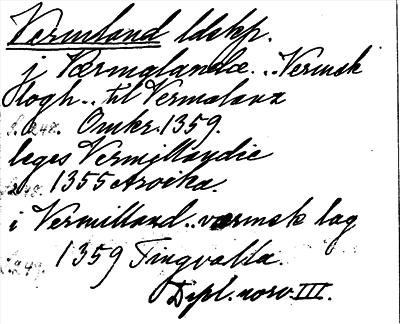 Vermland ldskp.
j Værmglandæ... Vermsk
logh... til Vermaland
S. 248. Omkr. 1359.
leges Vermillandie
S. 248. 1355 Arvika.
i Vermilland.. værmsk lag
1359 Tingvalla.
Dipl. norv. III.